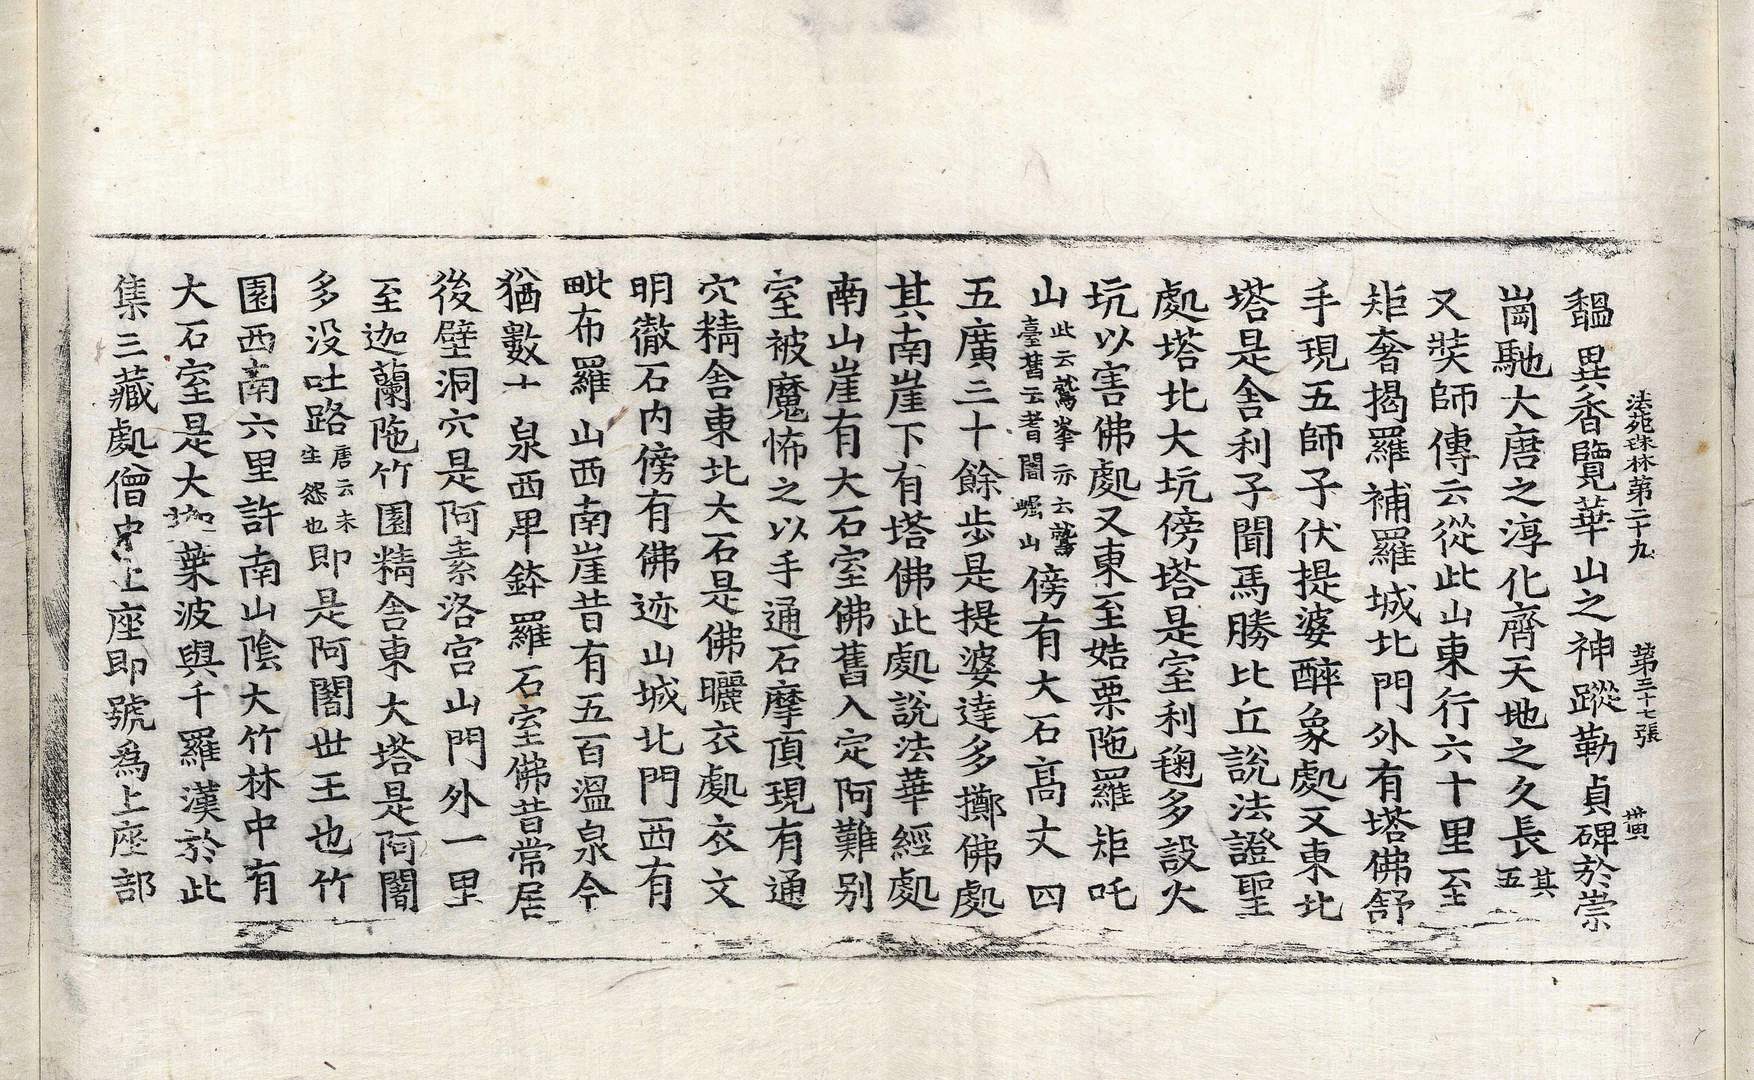 法苑珠林第二十九　第三十七張　橫
馧異香覽華山之神蹤勒貞碑於崇
崗馳大唐之淳化齊天地之久長其五
又奘師傳云從此山東行六十里至
矩奢揭羅補羅城北門外有塔佛舒
手現五師子伏提婆醉象處又東北
塔是舍利子聞馬勝比丘說法證聖
處塔北大坑傍塔是室利毱多設火
坑以害佛處又東至姞栗陁羅矩吒
山此云鷲峯亦云鷲臺舊云耆闍崛山傍有大石高丈四
五廣三十餘步是提婆達多擲佛處
其南崖下有塔佛此處說法華經處
南山崖有大石室佛舊入定阿難別
室被魔怖之以手通石摩頂現有通
穴精舍東北大石是佛曬衣處衣文
明徹石內傍有佛迹山城北門西有
毗布羅山西南崖昔有五百溫泉今
猶數十泉西卑鉢羅石室佛昔常居
後壁洞穴是阿素洛宮山門外一里
至迦蘭陁竹園精舍東大塔是阿闍
多沒吐路唐云未生怨也即是阿闍世王也竹
園西南六里許南山陰大竹林中有
大石室是大迦葉波與千羅漢於此
集三藏處僧中上座即號為上座部